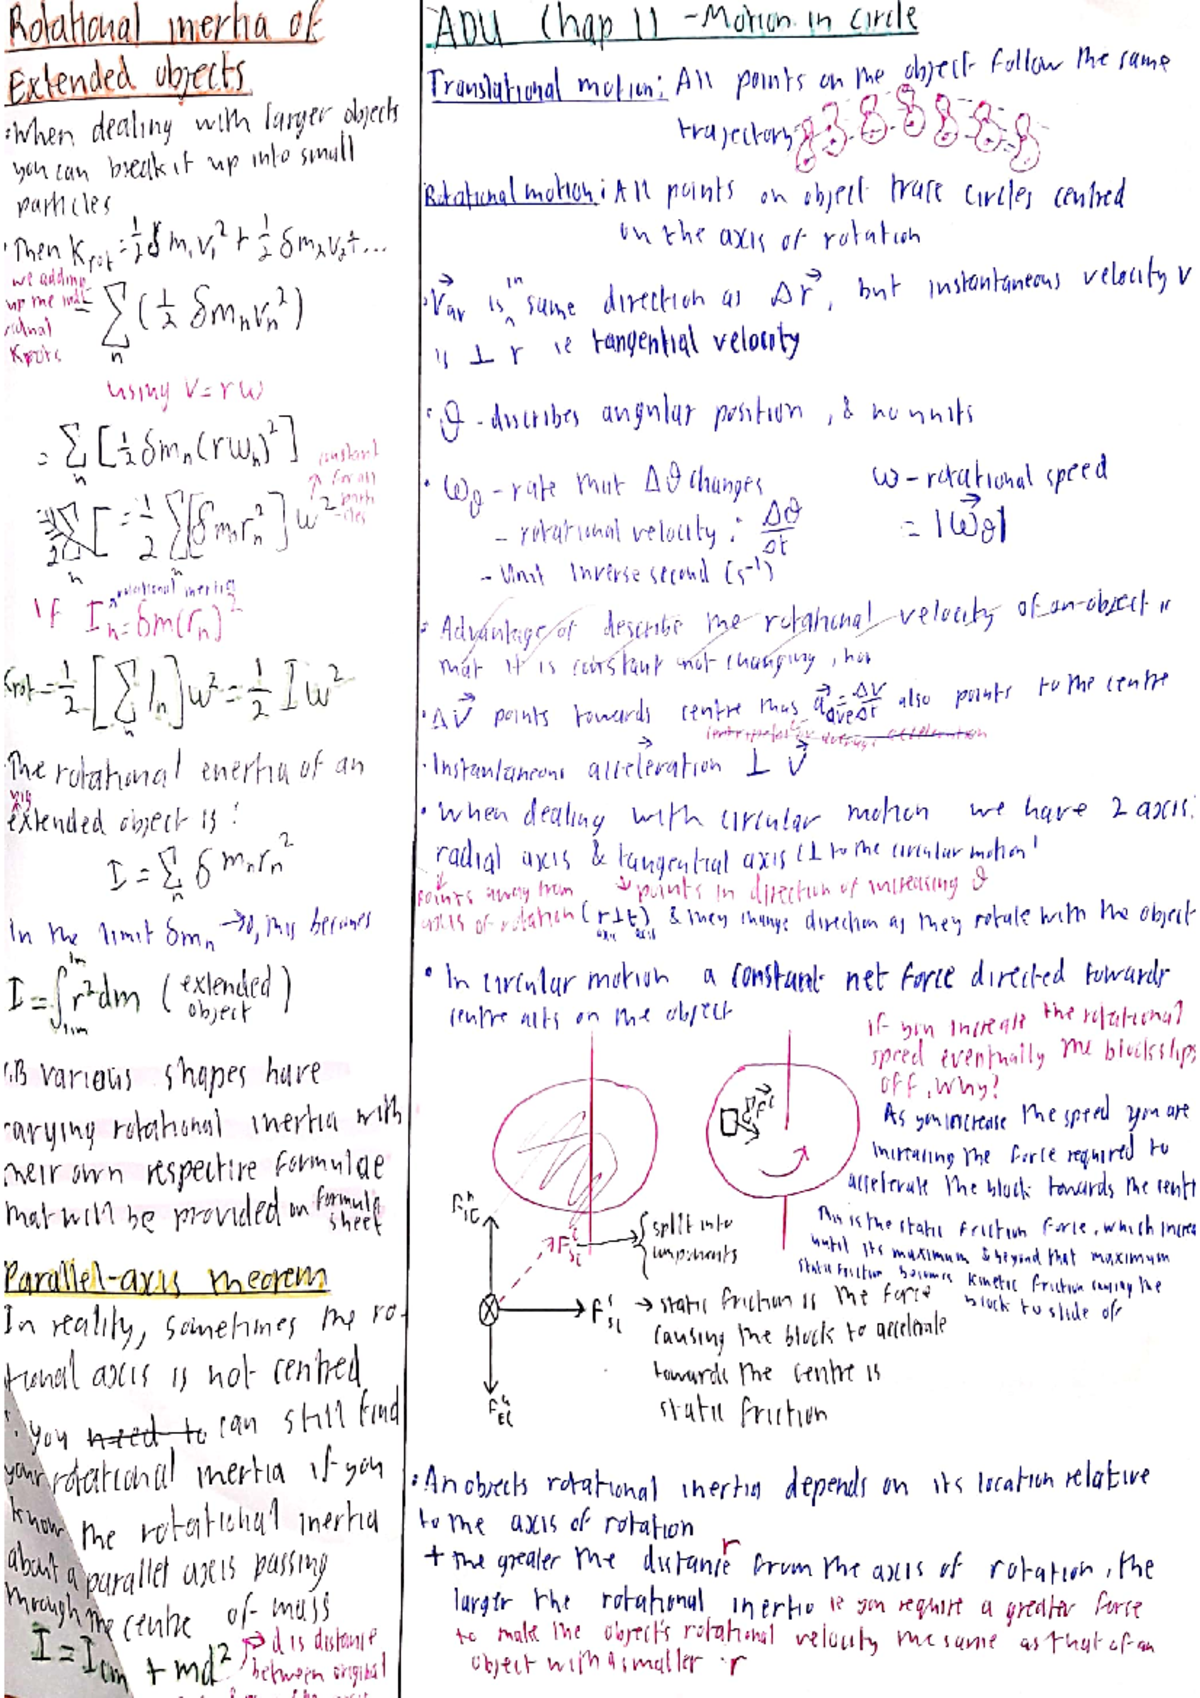 Rotational inertia of
Extended objects
· When dealing with larger objects
you can break it up into small
particles
· Then K_rot = ½ δm₁v₁² + ½ δm₂v₂² + ...
we adding
up the indi
vidual
K rots
= Σ_n (½ δm_n v_n²)
using v = rω
= Σ_n [½ δm_n (rω_n)²]
constant
for all
parti
cles
= ½ Σ_n [δm_n r_n²] ω²
rotational inertia
If I_n = δm(r_n)²
K_rot = ½ [Σ_n I_n] ω² = ½ I ω²
The rotational enertia of an
extended object is:
I = Σ_n δm_n r_n²
In the limit δm_n → 0, this becomes
I = ∫ r² dm (extended object)
lim
lim
N.B various shapes have
varying rotational inertia with
their own respective formulae
that will be provided on formula
sheet
Parallel-axis theorem
In reality, sometimes the ro-
tational axis is not centred
· you need to can still find
your rotational inertia if you
know the rotational inertia
about a parallel axis passing
through the centre of mass
I = I_cm + md²
→ d is distance
between original
ADU Chap 11 - Motion in Circle
Translational motion: All points on the object follow the same
trajectory
Rotational motion: All points on object trace circles centred
on the axis of rotation
· v⃗_av is in same direction as Δr⃗, but instantaneous velocity v
is ⊥ r ie tangential velocity
· ϑ - discribes angular position, & no units
· ω_ϑ - rate that Δϑ changes
ω - rotational speed
- rotational velocity: Δϑ/Δt
= |ω⃗_ϑ|
- Unit inverse second (s⁻¹)
· Advantage of describe the rotational velocity of an object is
that it is constant not changing, how
· Δv⃗ points towards centre thus a⃗_ave = Δv/Δt also points to the centre
· Instantaneous acceleration ⊥ v⃗
· When dealing with circular motion we have 2 axis:
radial axis & tangential axis (⊥ to the circular motion)
points away from
axis of rotation
↘ points in direction of increasing ϑ
(r ⊥ t) & they change direction as they rotate with the object
axis axis
· In circular motion a constant net force directed towards
centre acts on the object
If you increase the rotational
speed eventually the block slips
off, why?
As you increase the speed you are
increasing the force required to
accelerate the block towards the centre
This is the static friction force, which increa
until its maximum & beyond that maximum
static friction becomes kinetic friction causing the
block to slide off
split into
components
→ static friction is the force
causing the block to accelerate
towards the centre is
static friction
· An objects rotational inertia depends on its location relative
to the axis of rotation
+ the greater the distance r from the axis of rotation, the
larger the rotational inertia ie you require a greater force
to make the object's rotational velocity the same as that of an
object with a smaller r